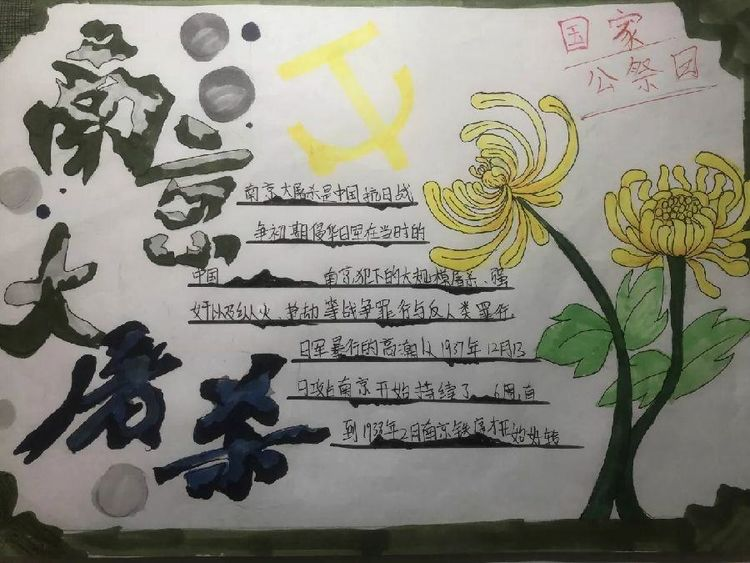 南京大屠杀
国家
公祭日
南京大屠杀是中国抗日战
争初期侵华日军在当时的
中国 南京犯下的大规模屠杀 强
奸以及纵火 抢劫等战争罪行与反人类罪行.
日军暴行的高潮从1937年12月13
日攻占南京开始持续了 6周直
到1938年2月南京秩序才开始好转